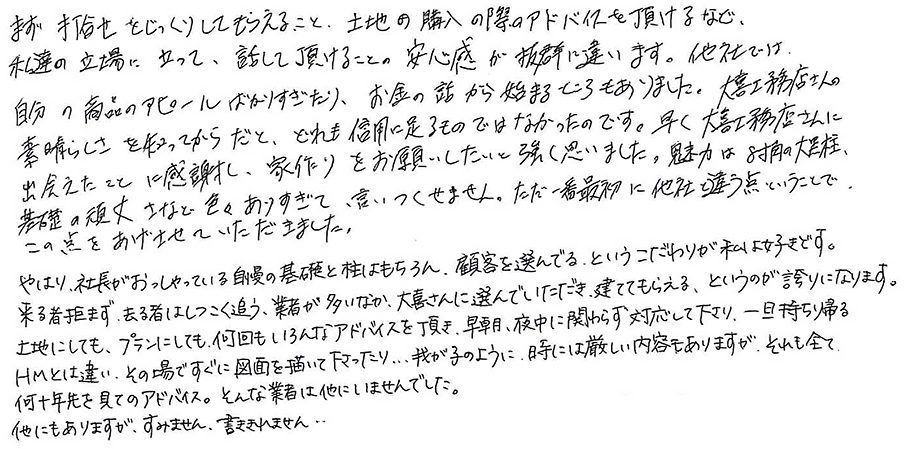 まず打合せをじっくりしてもらえること、土地の購入の際のアドバイスを頂けるなど、
私達の立場に立って、話して頂けることの安心感が抜群に違います。他社では、
自分の商品のアピールばかりすぎたり、お金の話から始まるところもありました。大喜工務店さんの
素晴らしさを知ってからだと、どれも信用に足るものではなかったのです。早く大喜工務店さんに
出会えたことに感謝し、家作りをお願いしたいと強く思いました。魅力は8寸角の大黒柱、
基礎の頑丈さなど色々ありすぎて、言いつくせません。ただ一番最初に他社と違う点ということで、
この点をあげさせていただきました。
やはり、社長がおっしゃっている自慢の基礎と柱はもちろん、顧客を選んでる、というこだわりが私は好きです。
来る者拒まず、去る者はしつこく追う、業者が多いなか、大喜さんに選んでいただき、建ててもらえる、というのが誇りになります。
土地にしても、プランにしても、何回もいろんなアドバイスを頂き、早朝、夜中に関わらず対応して下さり、一旦持ち帰る
HMとは違い、その場ですぐに図面を描いて下さったり…我が子のように、時には厳しい内容もありますが、それも全て、
何十年先を見てのアドバイス。そんな業者は他にいませんでした。
他にもありますが、すみません、書ききれません‥